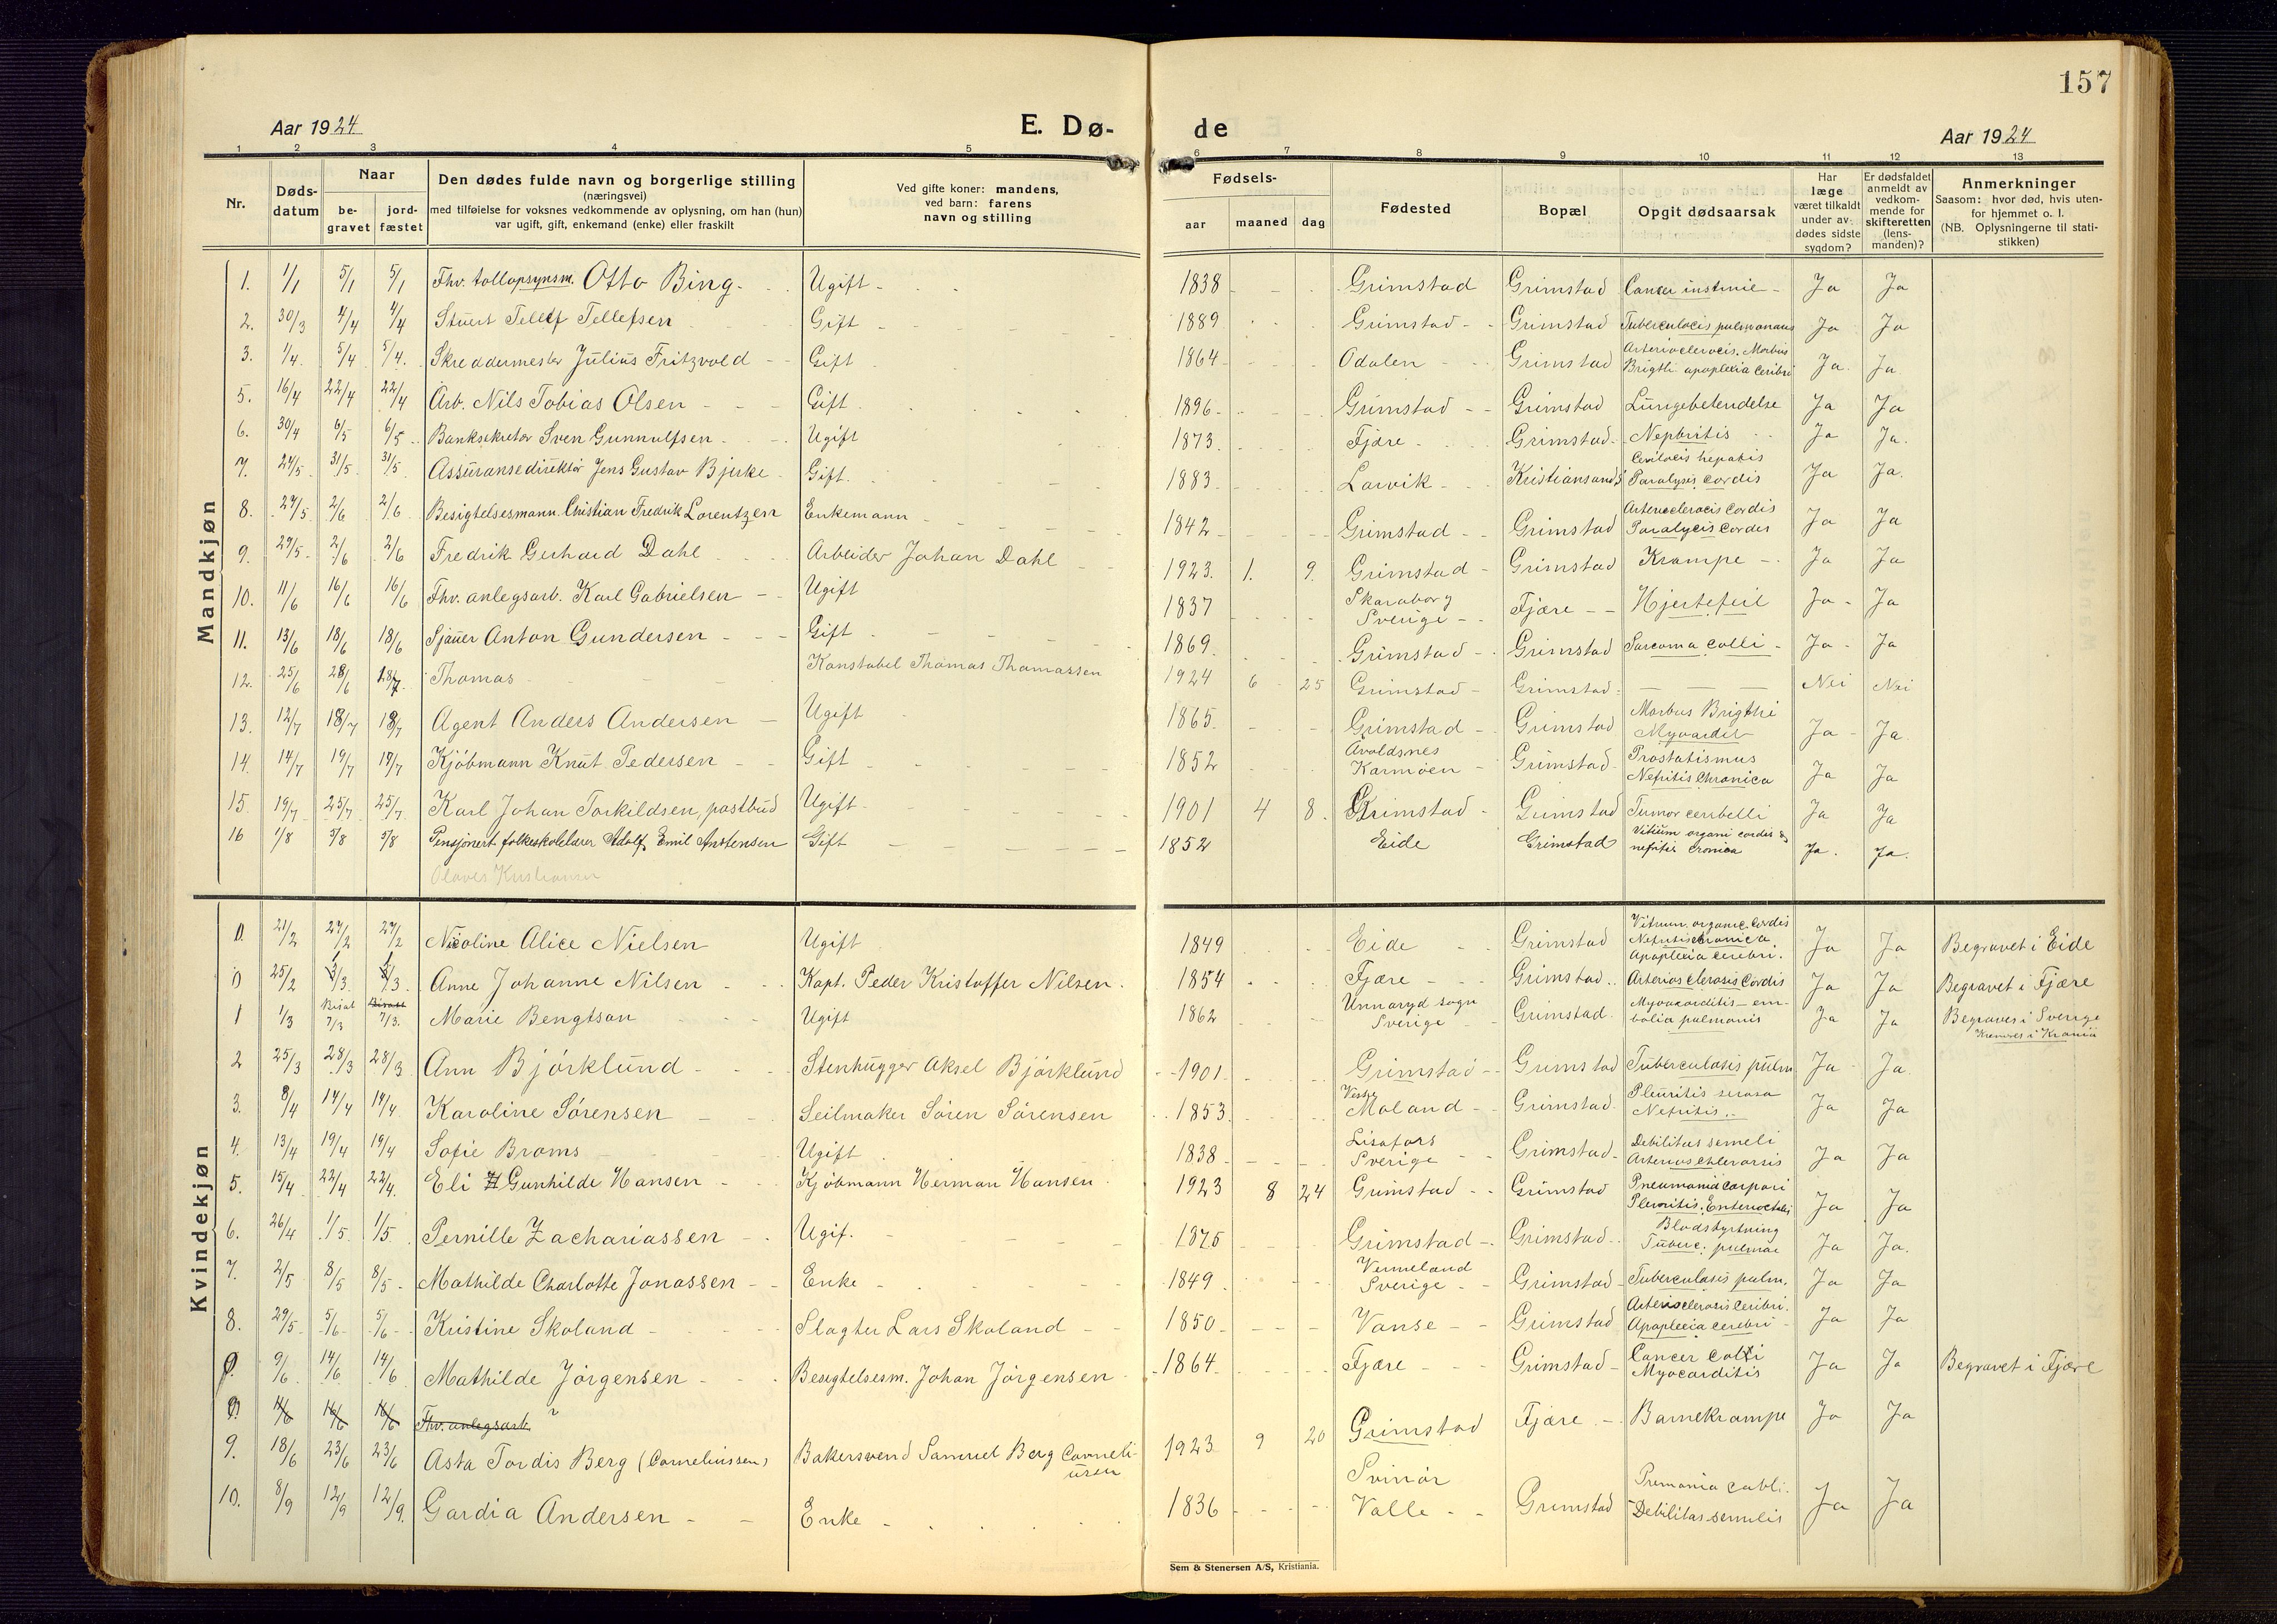 157
Aar 1924
E. Dø-
de
Aar 1924
1 2 3 4 5 6 7 8 9 10 11 12 13
Nr.
Døds-
datum
Naar
be-
gravet
jord-
fæstet
Den dødes fulde navn og borgerlige stilling
(næringsvei)
med tilføielse for voksnes vedkommende av oplysning, om han (hun)
var ugift, gift, enkemand (enke) eller fraskilt
Ved gifte koner: mandens,
ved barn: farens
navn og stilling
Fødsels-
aar maaned dag
Fødested
Bopæl
Opgit dødsaarsak
Har
læge
været tilkaldt
under av-
dødes sidste
sygdom?
Er dødsfaldet
anmeldt av
vedkom-
mende for
skifteretten
(lens-
manden)?
Anmerkninger
Saasom: hvor død, hvis uten-
for hjemmet o. l.
(NB. Oplysningerne til stati-
stikken)
Mandkjøn
1. 1/1 5/1 5/1 Fhv. tollopsynsm. Otto Bing - Ugift - 1838 Grimstad Grimstad Cancer Ja Ja
2. 30/3 4/4 4/4 Stuert Tellef Tellefsen Gift 1889 Grimstad Grimstad Tuberculocis pulmonaus Ja Ja
3. 1/4 5/4 5/4 Skreddermester Julius Fritzvold Gift 1864 Odalen Grimstad Arterioclerocis. Morbus Brigthi apoplexia ceribri Ja Ja
5. 16/4 22/4 22/4 Arb. Nils Tobias Olsen Gift 1896 Grimstad Grimstad Lungebetendelse Ja Ja
6. 30/4 6/5 6/5 Banksekretær Sven Gunnulfsen Ugift 1873 Fjære Grimstad Nephritis Ja Ja.
7. 24/5 31/5 31/5 Assuransedirektør Jens Gustav Bjerke Gift 1883 Larvik Kristiansand S hepatis Paralysis cordis Ja Ja.
8. 27/5 2/6 2/6 Besigtelsesmann Christian Fredrik Lorentzen Enkemann 1842 Grimstad Grimstad Arterioclerocis Cordis Paralycis Cordis Ja Ja
9. 29/5 2/6 2/6 Fredrik Gerhard Dahl Arbeider Johan Dahl 1923. 1. 9. Grimstad Grimstad Krampe Ja Ja
10. 11/6 16/6 16/6 Fhv. anlegsarb. Karl Gabrielsen Ugift 1837 Skaraborg Sverige Fjære Hjertefeil Ja Ja
11. 13/6 18/6 18/6 Sjauer Anton Gundersen Gift 1869. Grimstad Grimstad Sarcoma colli Ja Ja
12. 25/6 28/6 18/7 Thomas Konstabel Thomas Thomassen 1924 6 25 Grimstad Grimstad Nei Nei
13. 12/7 18/7 18/7 Agent Anders Andersen Ugift 1865. Grimstad Grimstad Morbus Brigthi Myocardit Ja Ja
14. 14/7 19/7 19/7 Kjöbmann Knut Pedersen Gift 1852 Avoldsnes Karmöen Grimstad Prostatismus Nefritis Chronica Ja Ja
15. 19/7 25/7 25/7 Karl Johan Torkildsen, postbud Ugift 1901 4 8. Grimstad Grimstad Tumor ceribelli Ja Ja
16 1/8 5/8 5/8 Pensjonert folkeskolelærer Adolf Emil Anstensen Gift 1852 Eide Grimstad Vitium organi cordis & nefritis cronica Ja. Ja.
Olaves Kristiansen
Kvindekjøn
0. 21/2 27/2 27/2 Nicoline Alice Nielsen Ugift 1849 Eide Grimstad Vitium organic Cordis Nefritis chronica Apoplexia Cerebri. Ja Ja Begravet i Eide
0 25/2 /3 /3 Anne Johanne Nilsen Kapt. Peder Kristoffer Nilsen. 1854 Fjære Grimstad Arteriosclerosis Cordis Ja Ja Begravet i Fjære
1 1/3 Bisat 7/3 Bisat 7/3. Marie Bengtson Ugift 1862 Unnaryd sogn Sverige Grimstad Myocarditis - embolia pulmonis Ja Ja Begraves i Sverige Kremeres i Krania
2 25/3 28/3 28/3 Ann Björklund Stenhugger Aksel Björklund 1901 Grimstad Grimstad Tuberculosis pulm Ja Ja.
3. 8/4 14/4 14/4 Karoline Sörensen Seilmaker Sören Sörensen 1853 Vestre Moland Grimstad Pleuritis serosa Nefritis Ja Ja
4. 13/4 19/4 19/4 Sofie Broms Ugift 1838 Lisafors Sverige Grimstad Debilitas semeli Ja Ja
5. 15/4 22/4 22/4. Eli Gunhilde Hansen Kjöbmann Herman Hansen 1923 8 24 Grimstad Grimstad Pneumonia Plevritis. Ja Ja
6. 26/4 1/5. 1/5 Pernille Zachariassen Ugif. 1875 Grimstad Grimstad Blodstyrtning Tuberc. pulmae Ja Ja.
7. 2/5 8/5 8/5 Mathilde Charlotte Jonassen Enke 1849 Vermeland Sverige Grimstad Tuberculosis pulm. Ja Ja
8. 29/5 5/6 5/6 Kristine Skoland Slagter Lars Skoland 1850 Vanse Grimstad Arteriosclerosis ceribri. Apoplexia cerebri Ja Ja
0. 9/6 14/6 14/6 Mathilde Jörgensen Besigtelsesm. Johan Jörgensen 1864 Fjære Grimstad Cancer Colli Myocarditis Ja Ja Begravet i Fjære
9. 11/6 16/6 16/6 Fhv. anlegsarb.
9. 18/6 23/6 23/6 Asta Tordis Berg (Corneliussen) Bakersvend Samuel Berg Corneliusen 1923 9 20 Grimstad Fjære Barnekrampe Ja Ja
10. 8/9 12/9 12/9. Gardia Andersen Enke 1836 Svinör Valle Grimstad Debilitas semilis Ja Ja
Sem & Stenersen A/S, Kristiania.